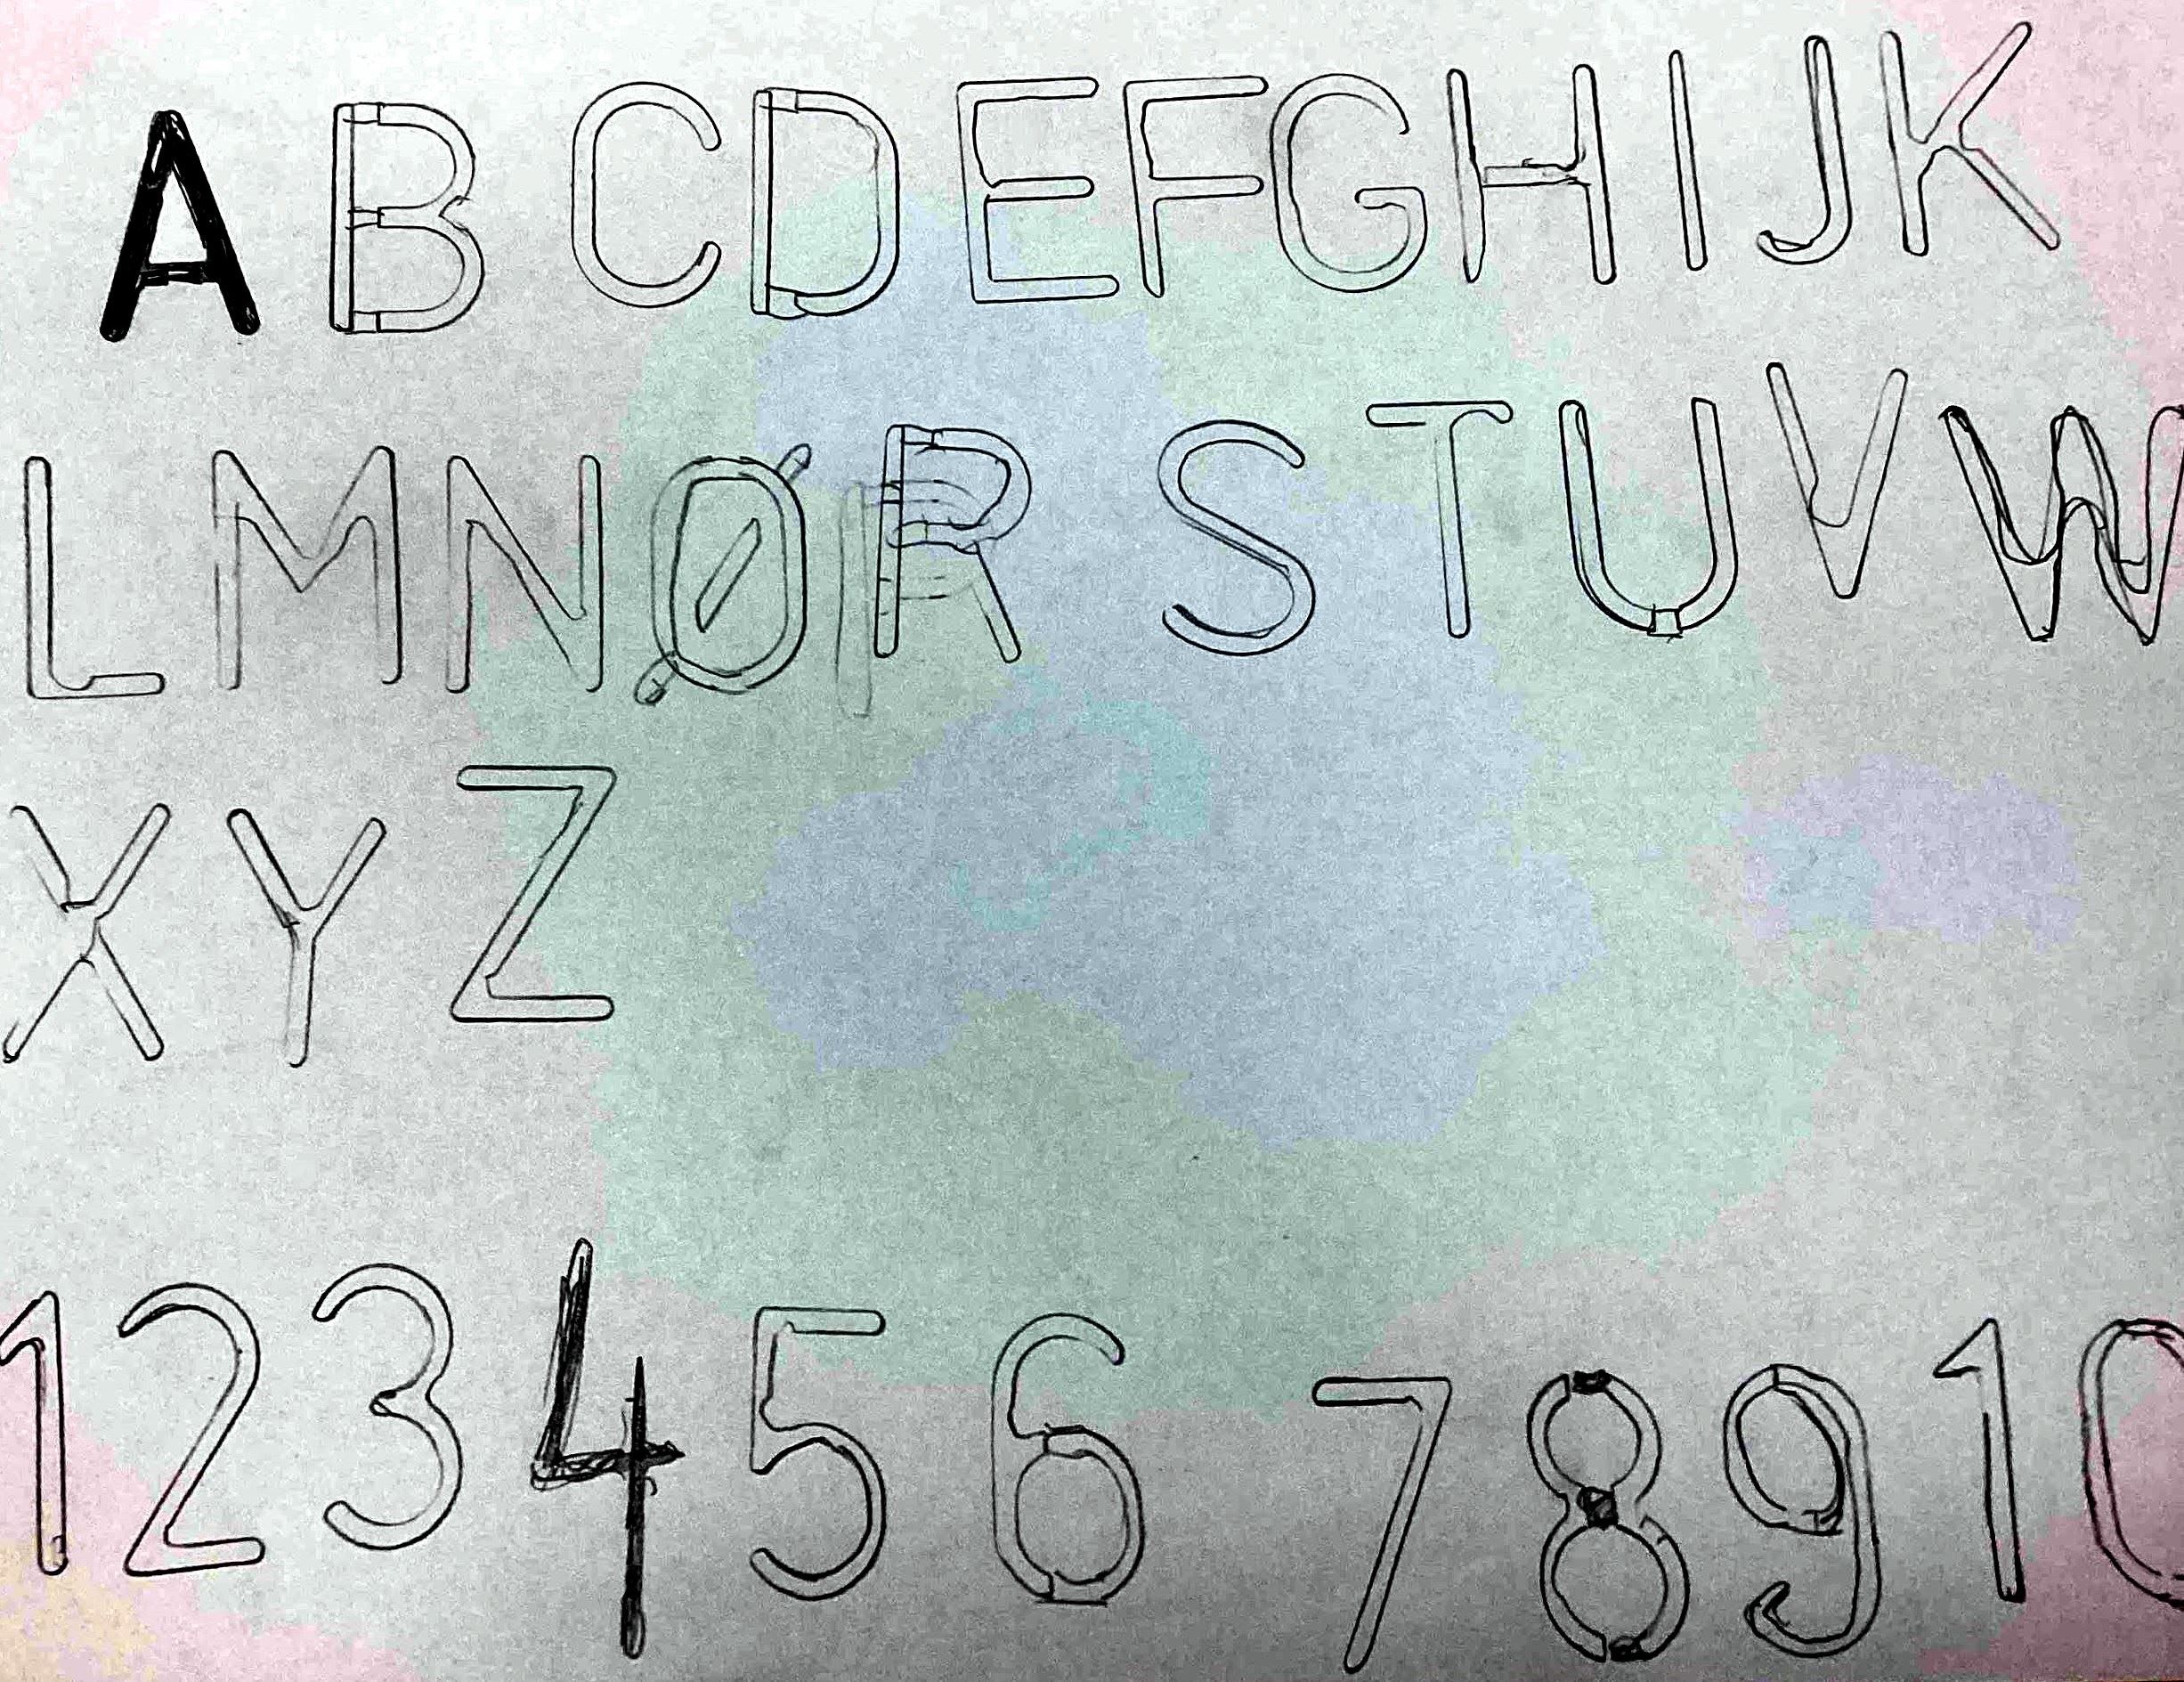 A B C D E F G H I J K
L M N Ø R S T U V W
X Y Z
1 2 3 4 5 6 7 8 9 10